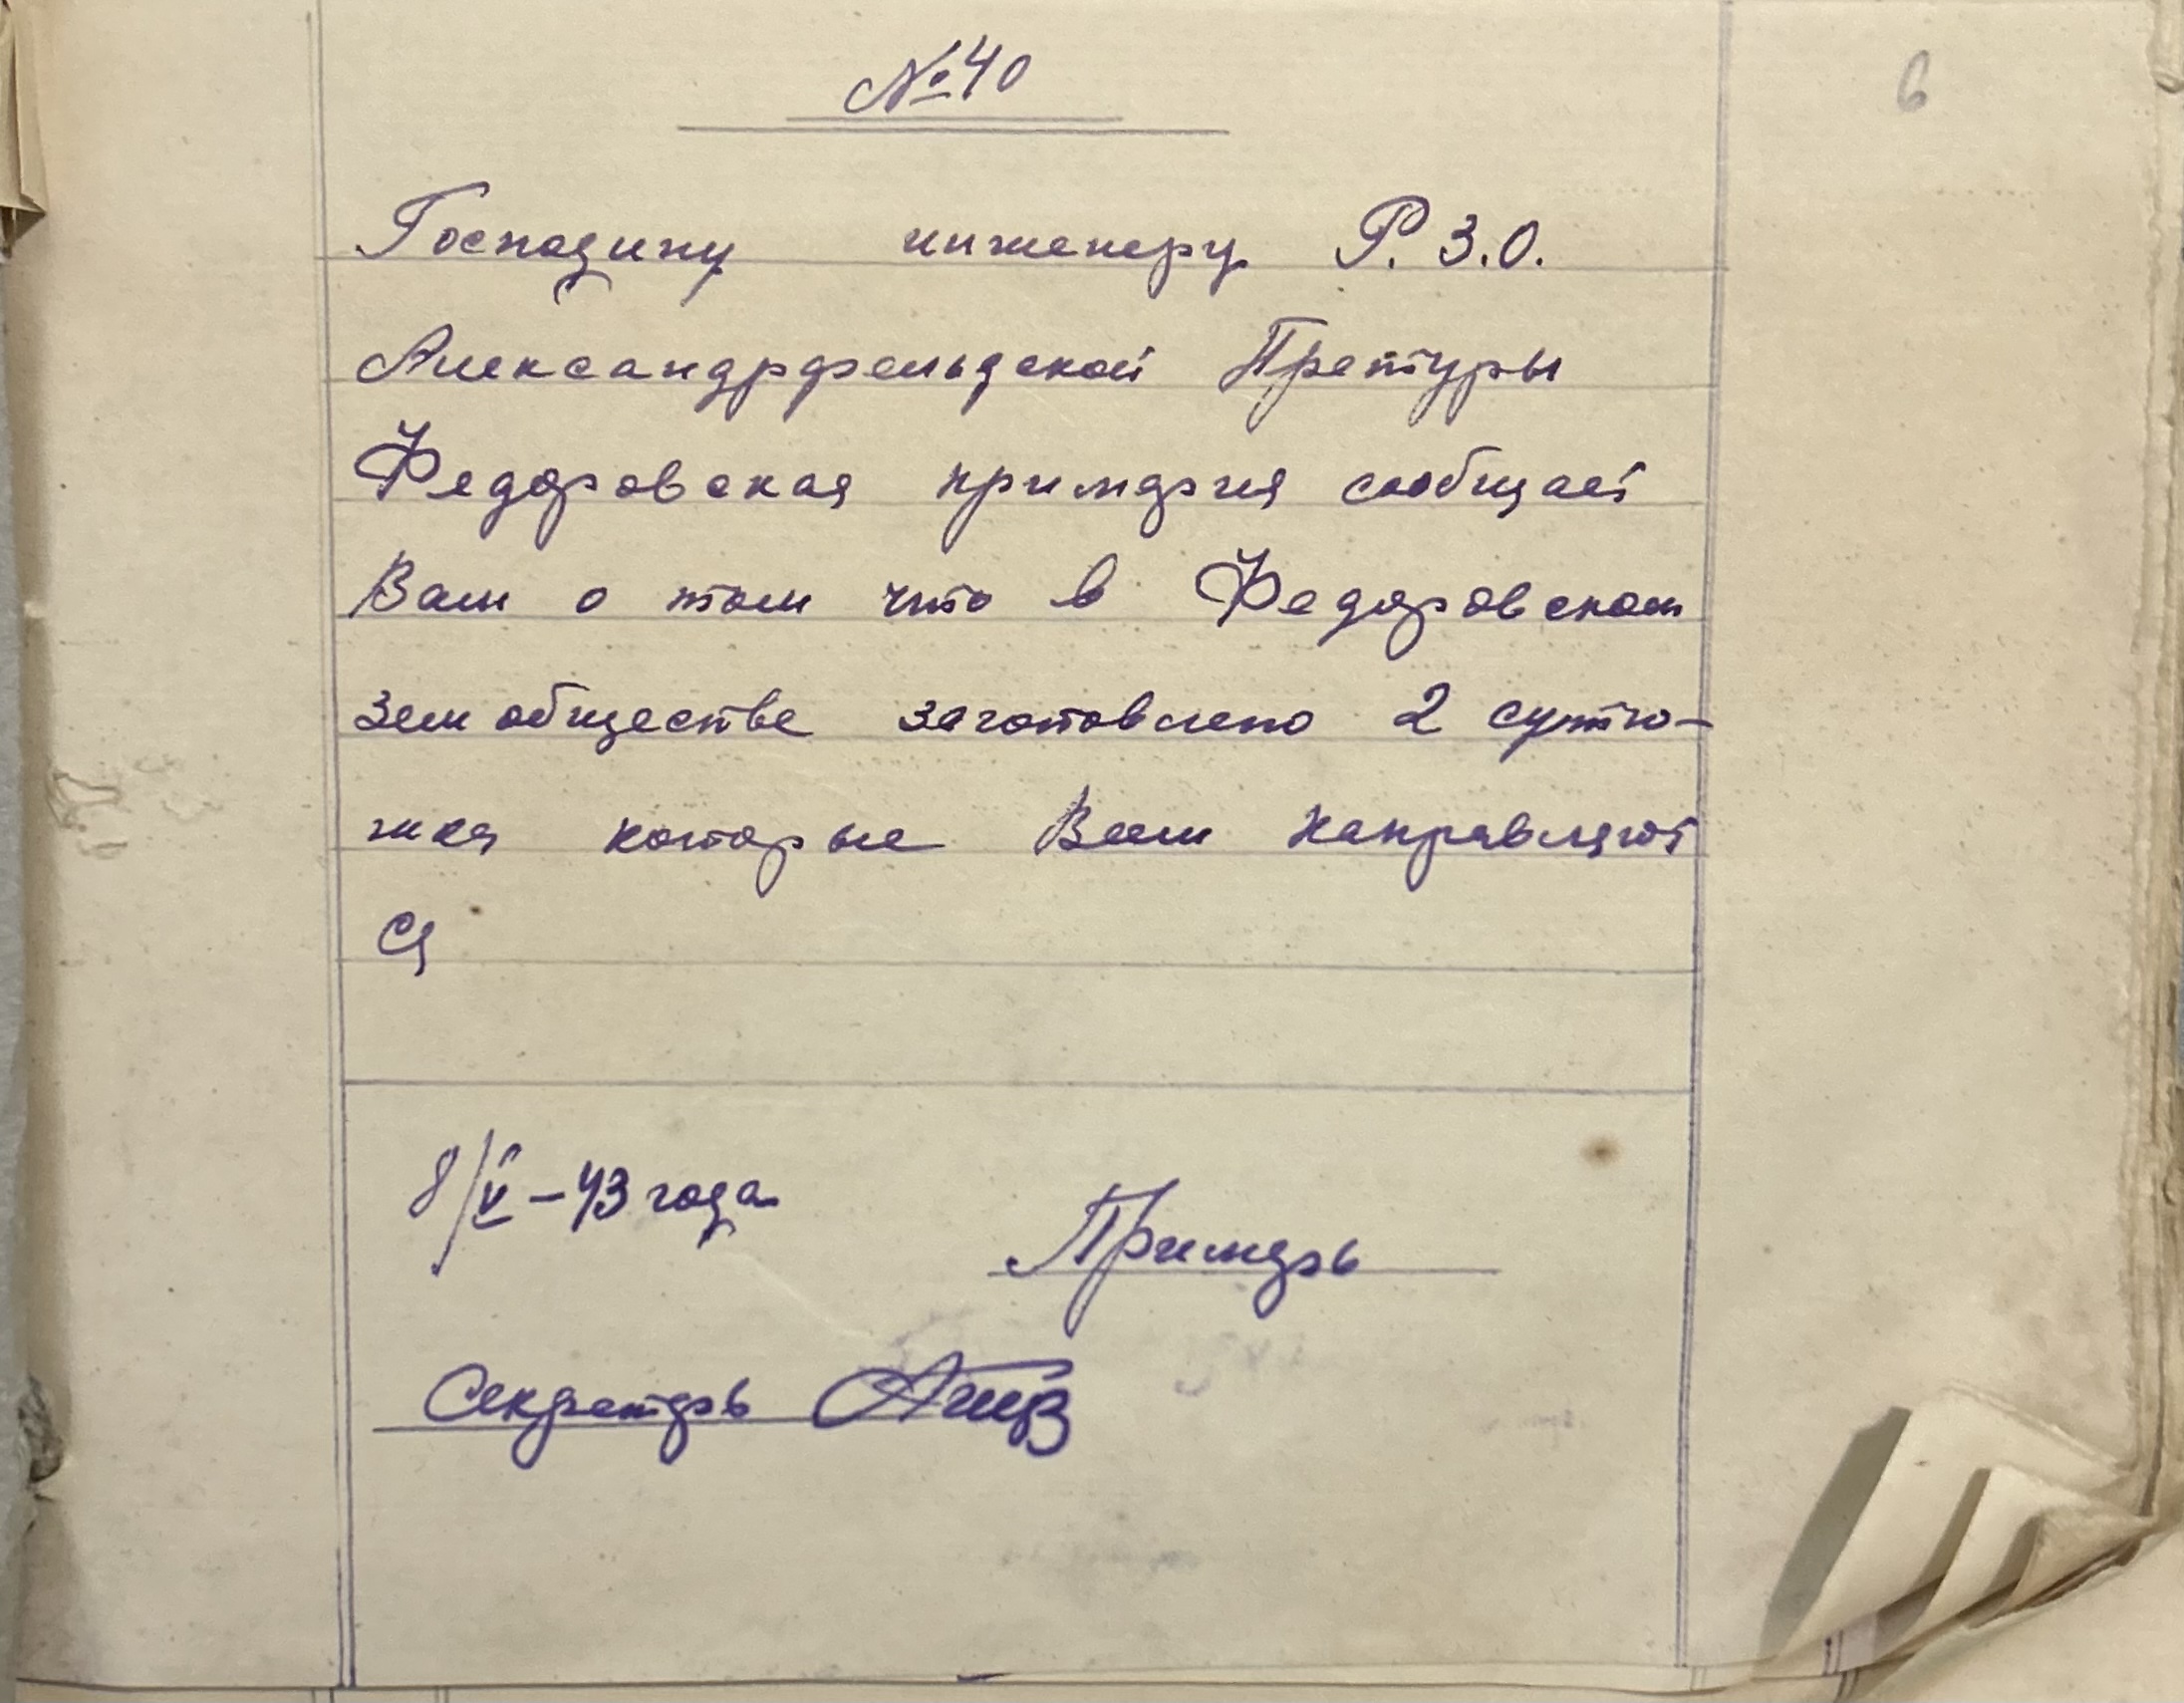 №40
6
Господину инженеру Р.З.О.
Александрфельдской Претуры
Федоровская примария сообщает
Вам о том что в Федоровском
земобществе заготовлено 2 сутю-
жка которые Вам направляют
ся
8/V-43 года
Примарь
Секретарь